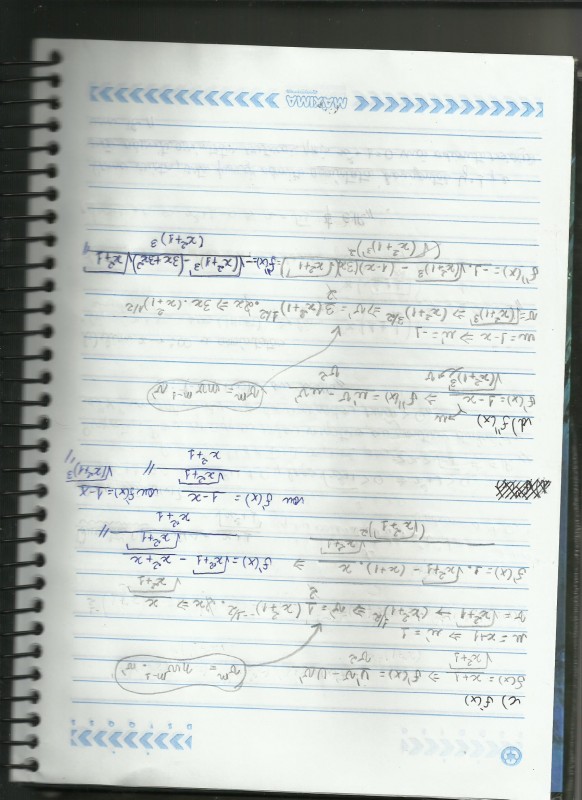 DSTQQSS
c) f'(x)
f(x) = x+1 / √x²+1 ⇒ f'(x) = u'v - uv' / v²
v^m = mv^m-1 . v'
u = x+1 ⇒ u' = 1
v = √x²+1 → (x²+1)^1/2 ⇒ v' = 1/2 (x²+1)^-1/2 . 2x ⇒ x / √x²+1
f'(x) = 1 . √x²+1 - (x+1) . x / √x²+1 / (√x²+1)² ⇒ f'(x) = √x²+1 - x²+x / √x²+1 / x²+1 //
ou f'(x) = 1-x / √x²+1 / x²+1 // ou f'(x) = 1-x / √(x²+1)³ //
d) f''(x)
f'(x) = 1-x / √(x²+1)³ ⇒ f''(x) = u'v - uv' / v²
v^m = mv^m-1
u = 1-x ⇒ u' = -1
v = √(x²+1)³ ⇒ (x²+1)^3/2 ⇒ v' = 3/2 (x²+1)^1/2 . 2x ⇒ 3x . (x²+1)^1/2
f''(x) = -1 . √(x²+1)³ - (1-x)(3x)(√x²+1) / (√(x²+1)³)² = f''(x) = -√(x²+1)³ - (3x+3x²)√x²+1 / (x²+1)³ //
MÁXIMA